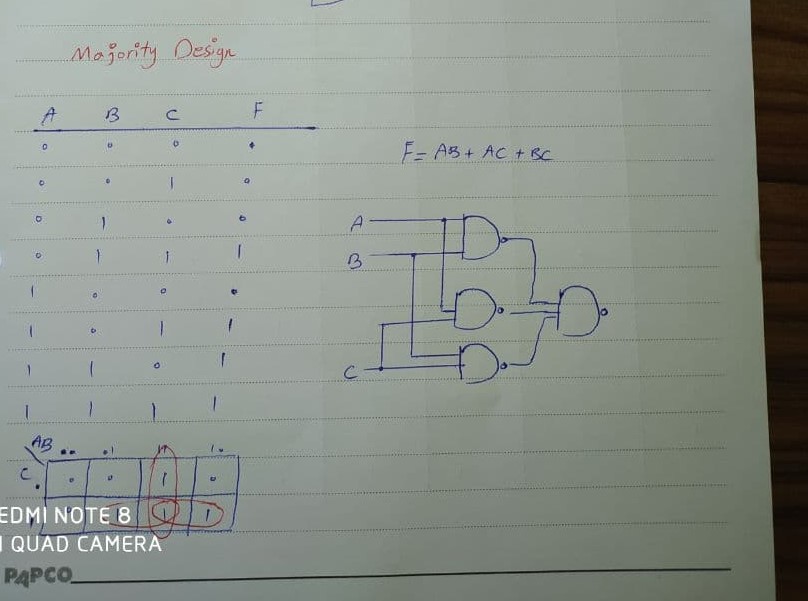 Majority Design
A B C F
0 0 0 0
0 0 1 0
0 1 0 0
0 1 1 1
1 0 0 0
1 0 1 1
1 1 0 1
1 1 1 1
F = AB + AC + BC
A
B
C
AB 00 01 11 10
C
0 0 0 1 0
1 1 1
EDMI NOTE 8
QUAD CAMERA
PAPCO